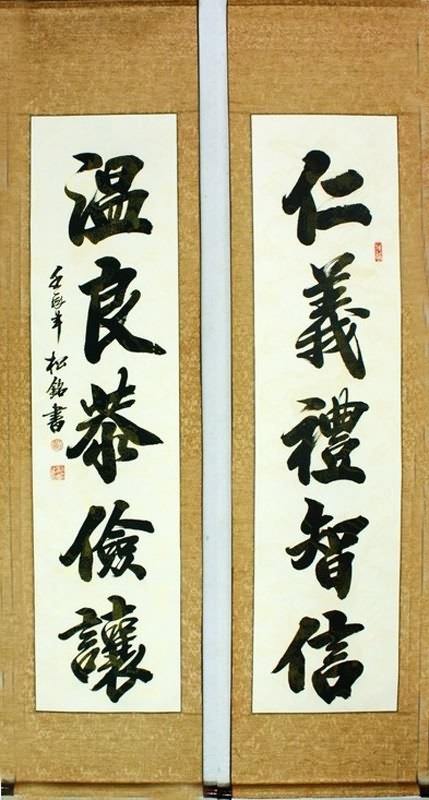 仁義禮智信
温良恭儉讓
壬辰年 松銘書